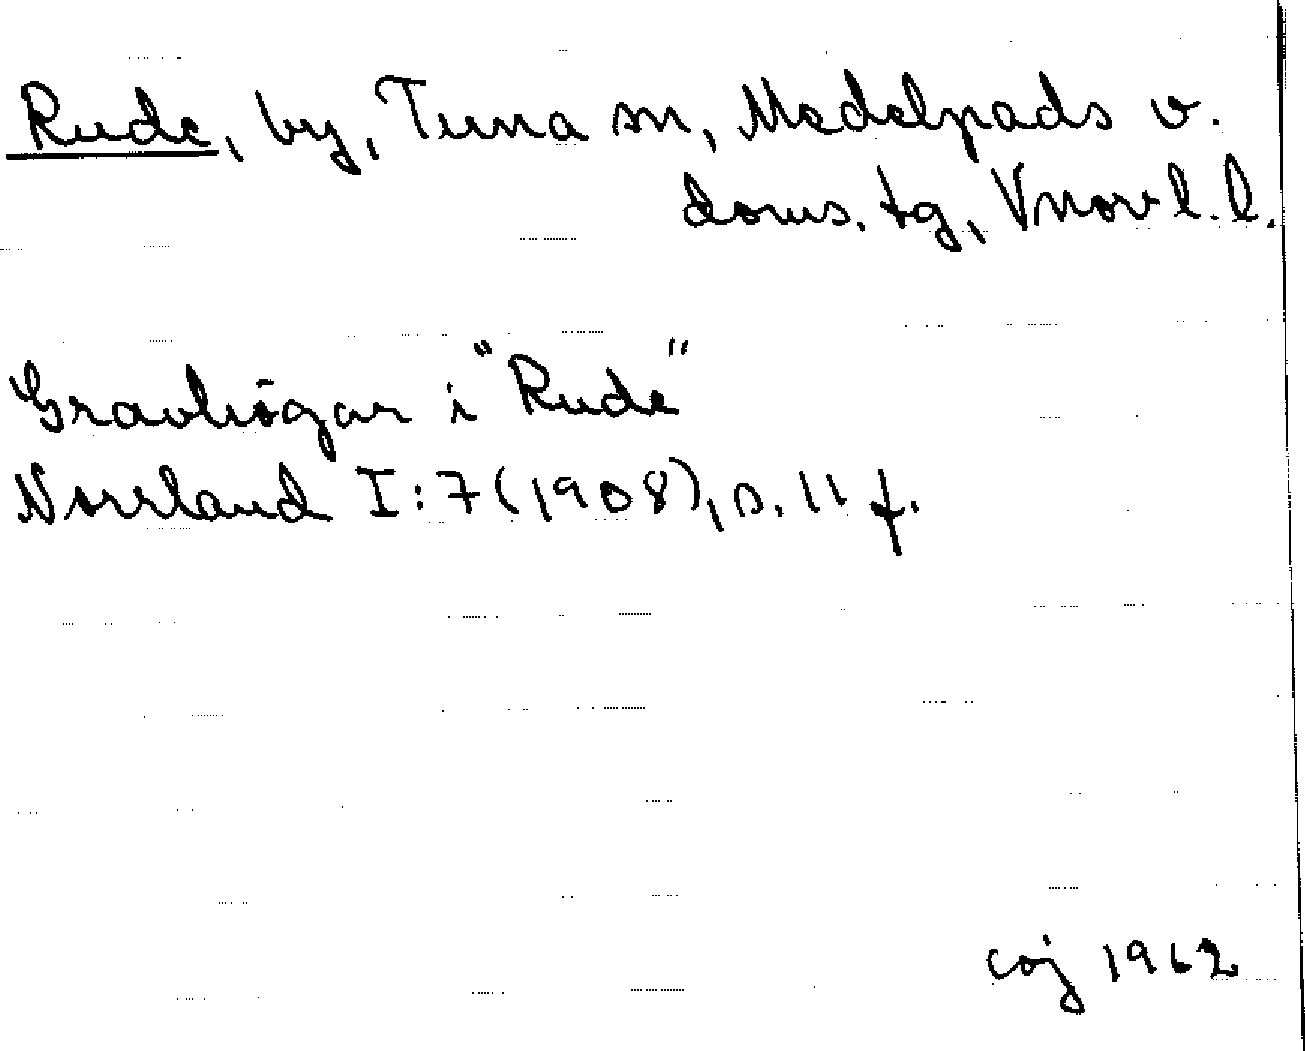 Rude, by, Tuna sn, Medelpads v.
doms. tg, Vnorrl. l.
Gravhögar i "Rude"
Norrland I:7 (1908), s. 11 f.
coj 1962